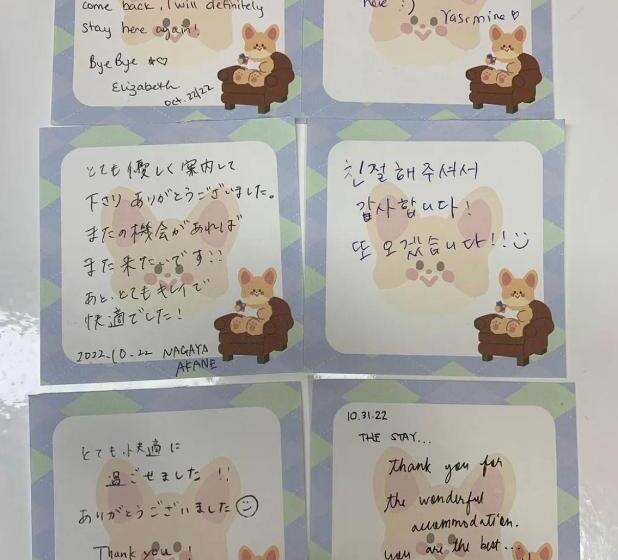 come back, I will definitely
stay here again!
Bye Bye ☆♡
Elizabeth
Oct. 22/22
here :)
Yasrmine ♡
とても優しく案内して
下さりありがとうございました。
またの機会があれば
また来たいです!!
あと、とてもキレイで
快適でした!
2022.10.22 NAGAYA
AKANE
친절해주셔서
감사합니다!
또 오겠습니다!!
とても快適に
過ごせました!!
ありがとうございました
Thank you !
10.31.22
THE STAY...
thank you for
the wonderful
accommodation.
you are the best..